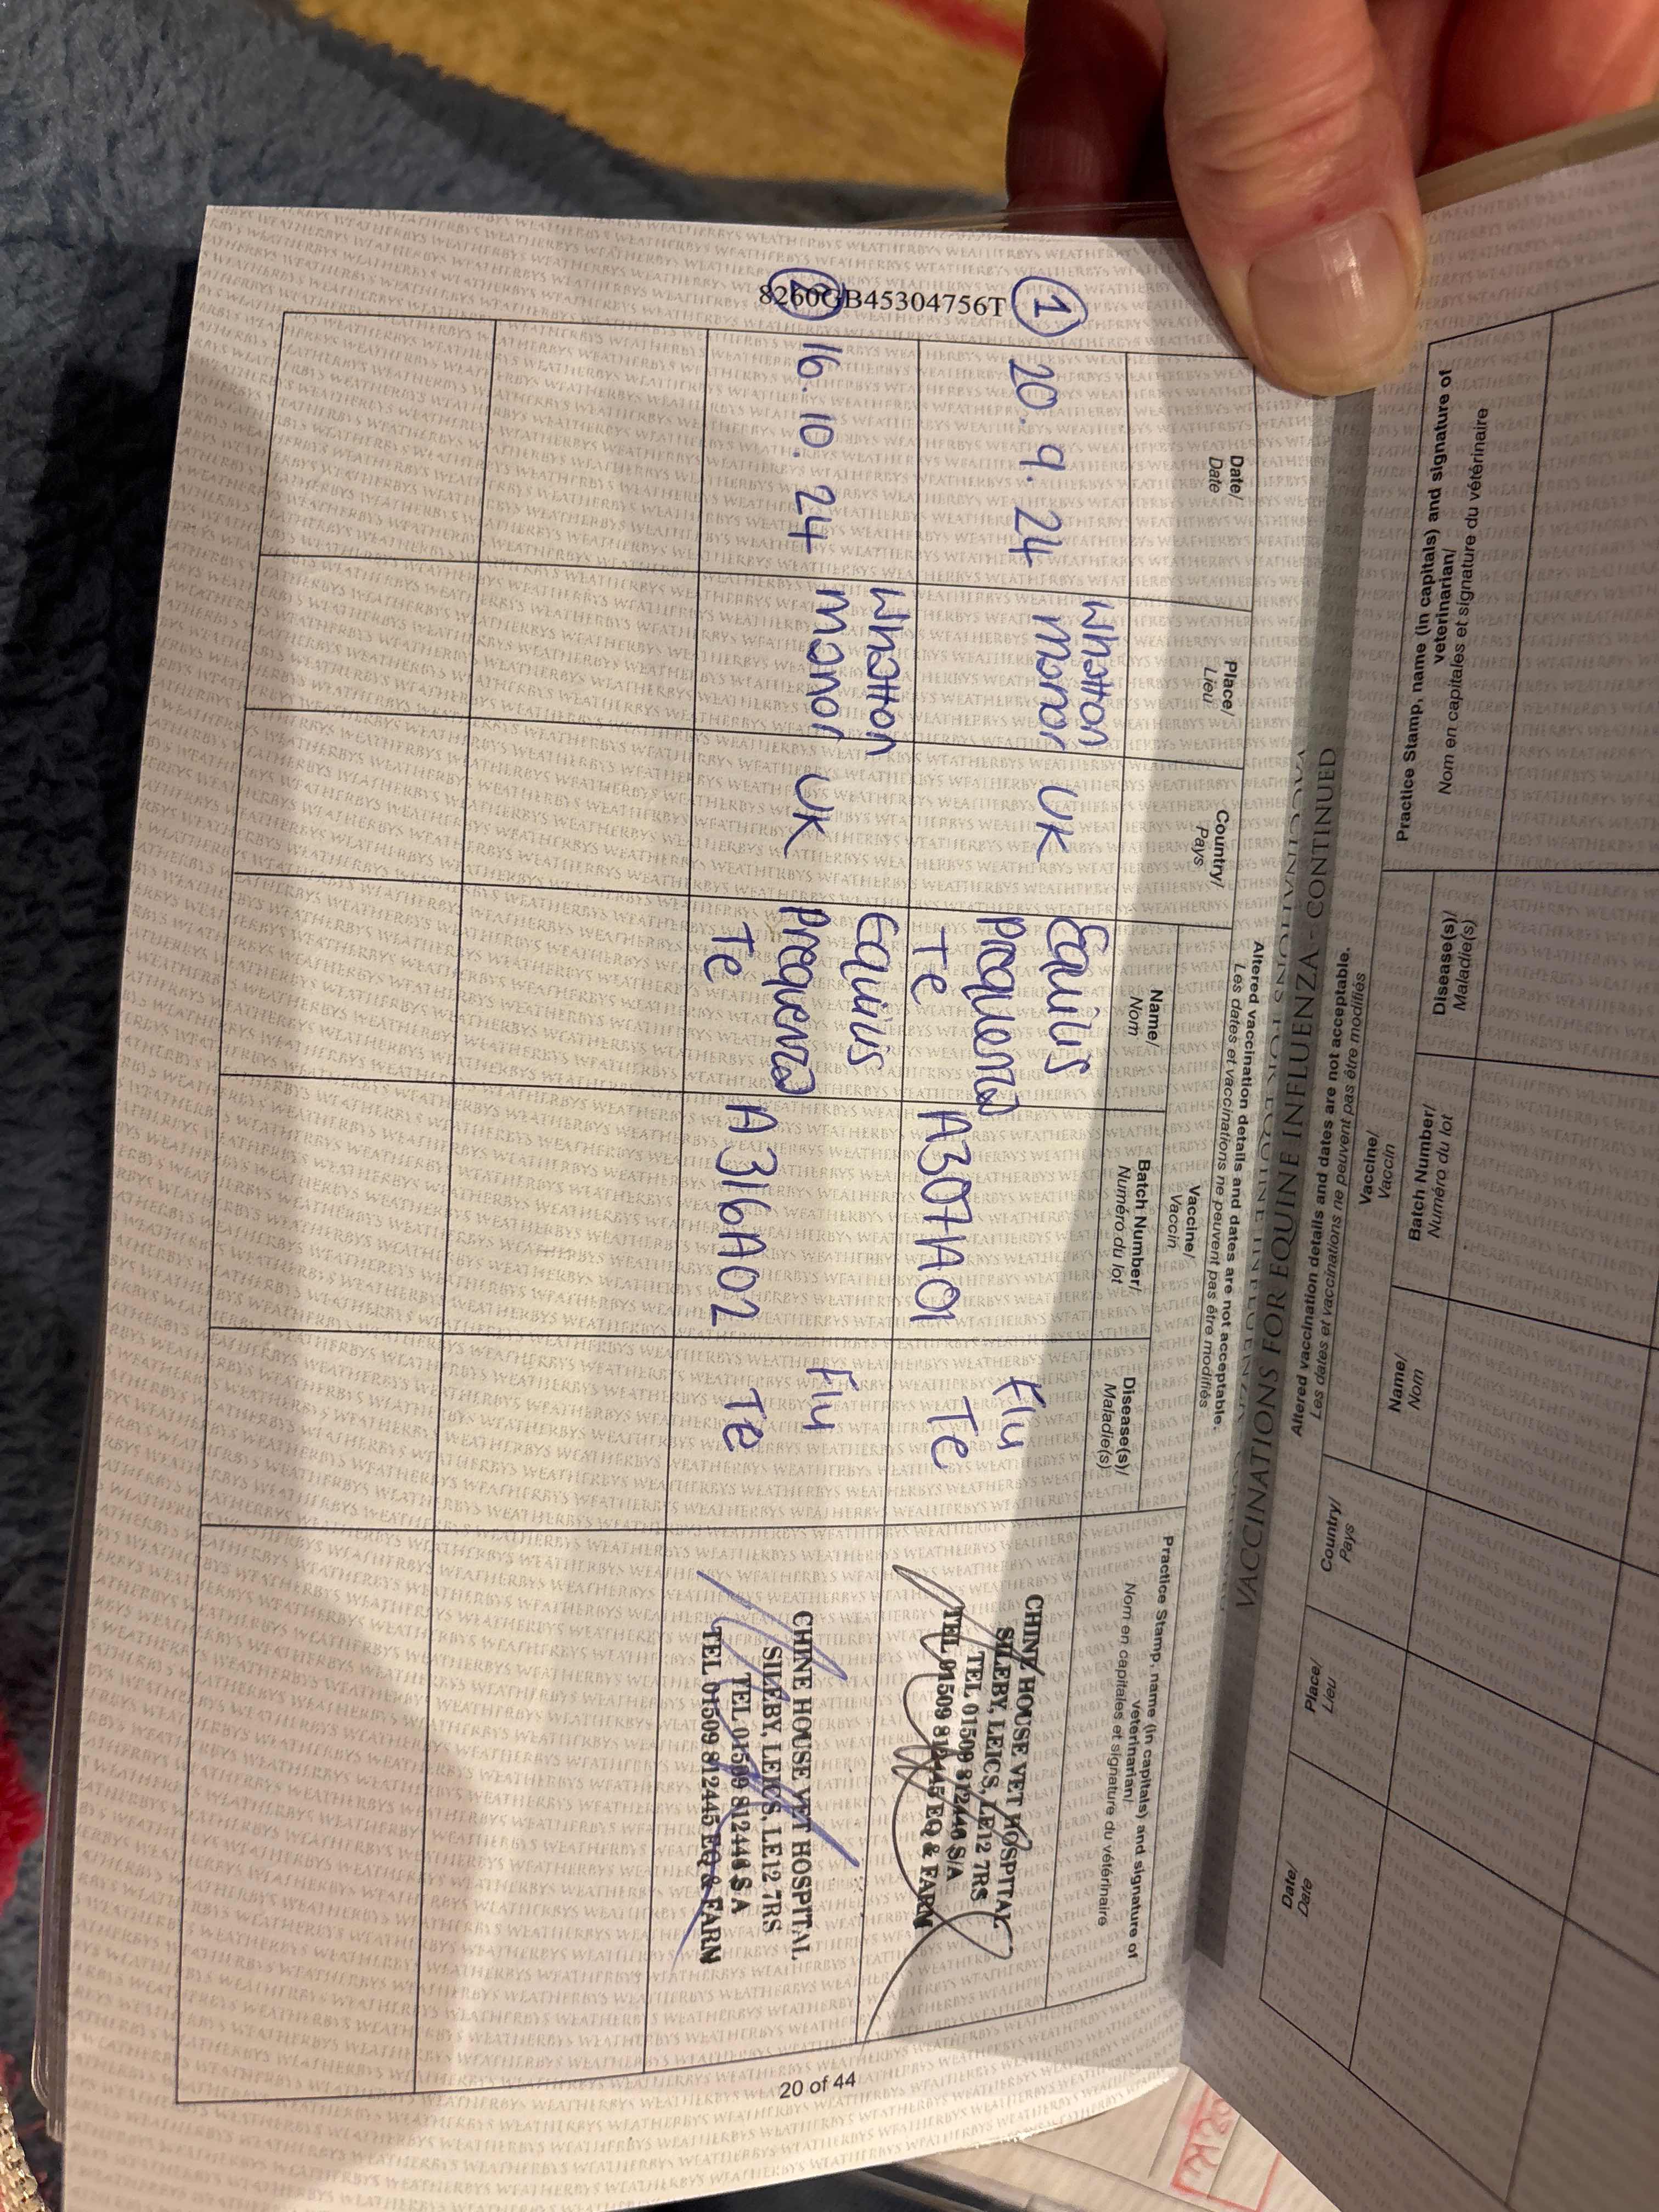 8260GB45304756T
VACCINATIONS FOR EQUINE INFLUENZA - CONTINUED
Altered vaccination details and dates are not acceptable.
Les dates et vaccinations ne peuvent pas être modifiés
Date/
Date
Place/
Lieu
Country/
Pays
Vaccine/
Vaccin
Name/
Nom
Batch Number/
Numéro du lot
Disease(s)/
Maladie(s)
Practice Stamp, name (in capitals) and signature of
veterinarian/
Nom en capitales et signature du vétérinaire
1
20. 9. 24
Whatton
Manor
UK
Equilis
prequenza
Te
A307A01
Flu
Te
CHINE HOUSE VET HOSPITAL
SILEBY, LEICS, LE12 7RS
TEL 01509 812446 S/A
TEL 01509 812445 EQ & FARM
2
16. 10. 24
Whatton
Manor
UK
Equilis
prequenza
Te
A316A02
Flu
Te
CHINE HOUSE VET HOSPITAL
SILEBY, LEICS, LE12 7RS
TEL 01509 812446 S A
TEL 01509 812445 EQ & FARM
20 of 44
Altered vaccination details and dates are not acceptable.
Les dates et vaccinations ne peuvent pas être modifiés
Date/
Date
Place/
Lieu
Country/
Pays
Vaccine/
Vaccin
Name/
Nom
Batch Number/
Numéro du lot
Disease(s)/
Maladie(s)
Practice Stamp, name (in capitals) and signature of
veterinarian/
Nom en capitales et signature du vétérinaire